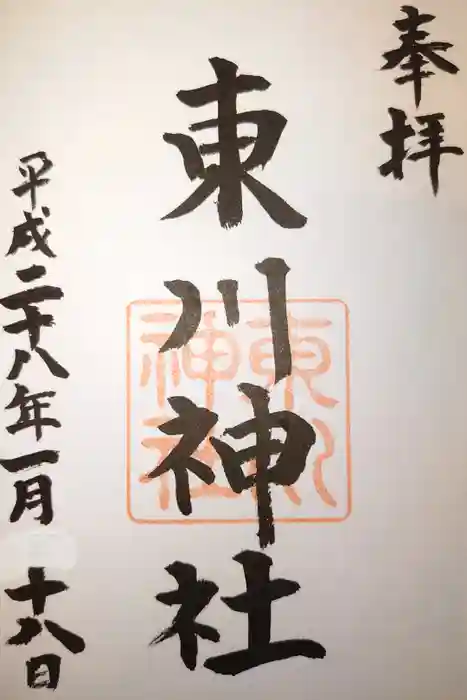 奉拝
東川神社
東川神社
平成二十八年一月十八日